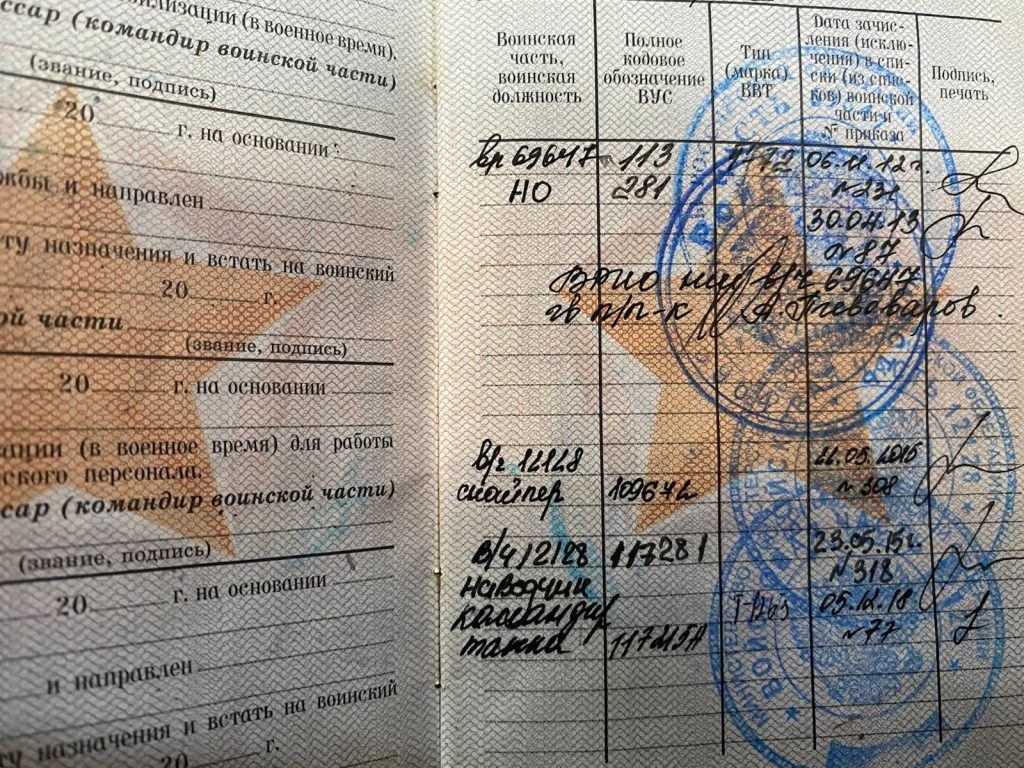 илизации (в военное время).
ссар (командир воинской части)
(звание, подпись)
20 г. на основании
жбы, и направлен
ту назначения и встать на воинский
20 г.
ой части
(звание, подпись)
20 г. на основании
ации (в военное время) для работы
ского персонала.
ссар (командир воинской части)
(звание, подпись)
20 г. на основании
и направлен
ту назначения и встать на воинский
20 г.
Воинская часть, воинская должность
Полное кодовое обозначение ВУС
Тип (марка) ВВТ
Дата зачис-
ления (исклю-
чения) в спи-
ски (из спис-
ков) воинской
части и
№ приказа
Подпись, печать
69647 113 06.11.12г.
НО 281
30.04.13
№87
в/ч 69647
гв п/п-к А. Пивоваров.
в/ч 12128
снайпер 109672 №308
в/ч 12128 117281 23.05.15г.
наводчик №318
командир 05.12.18
танка №77